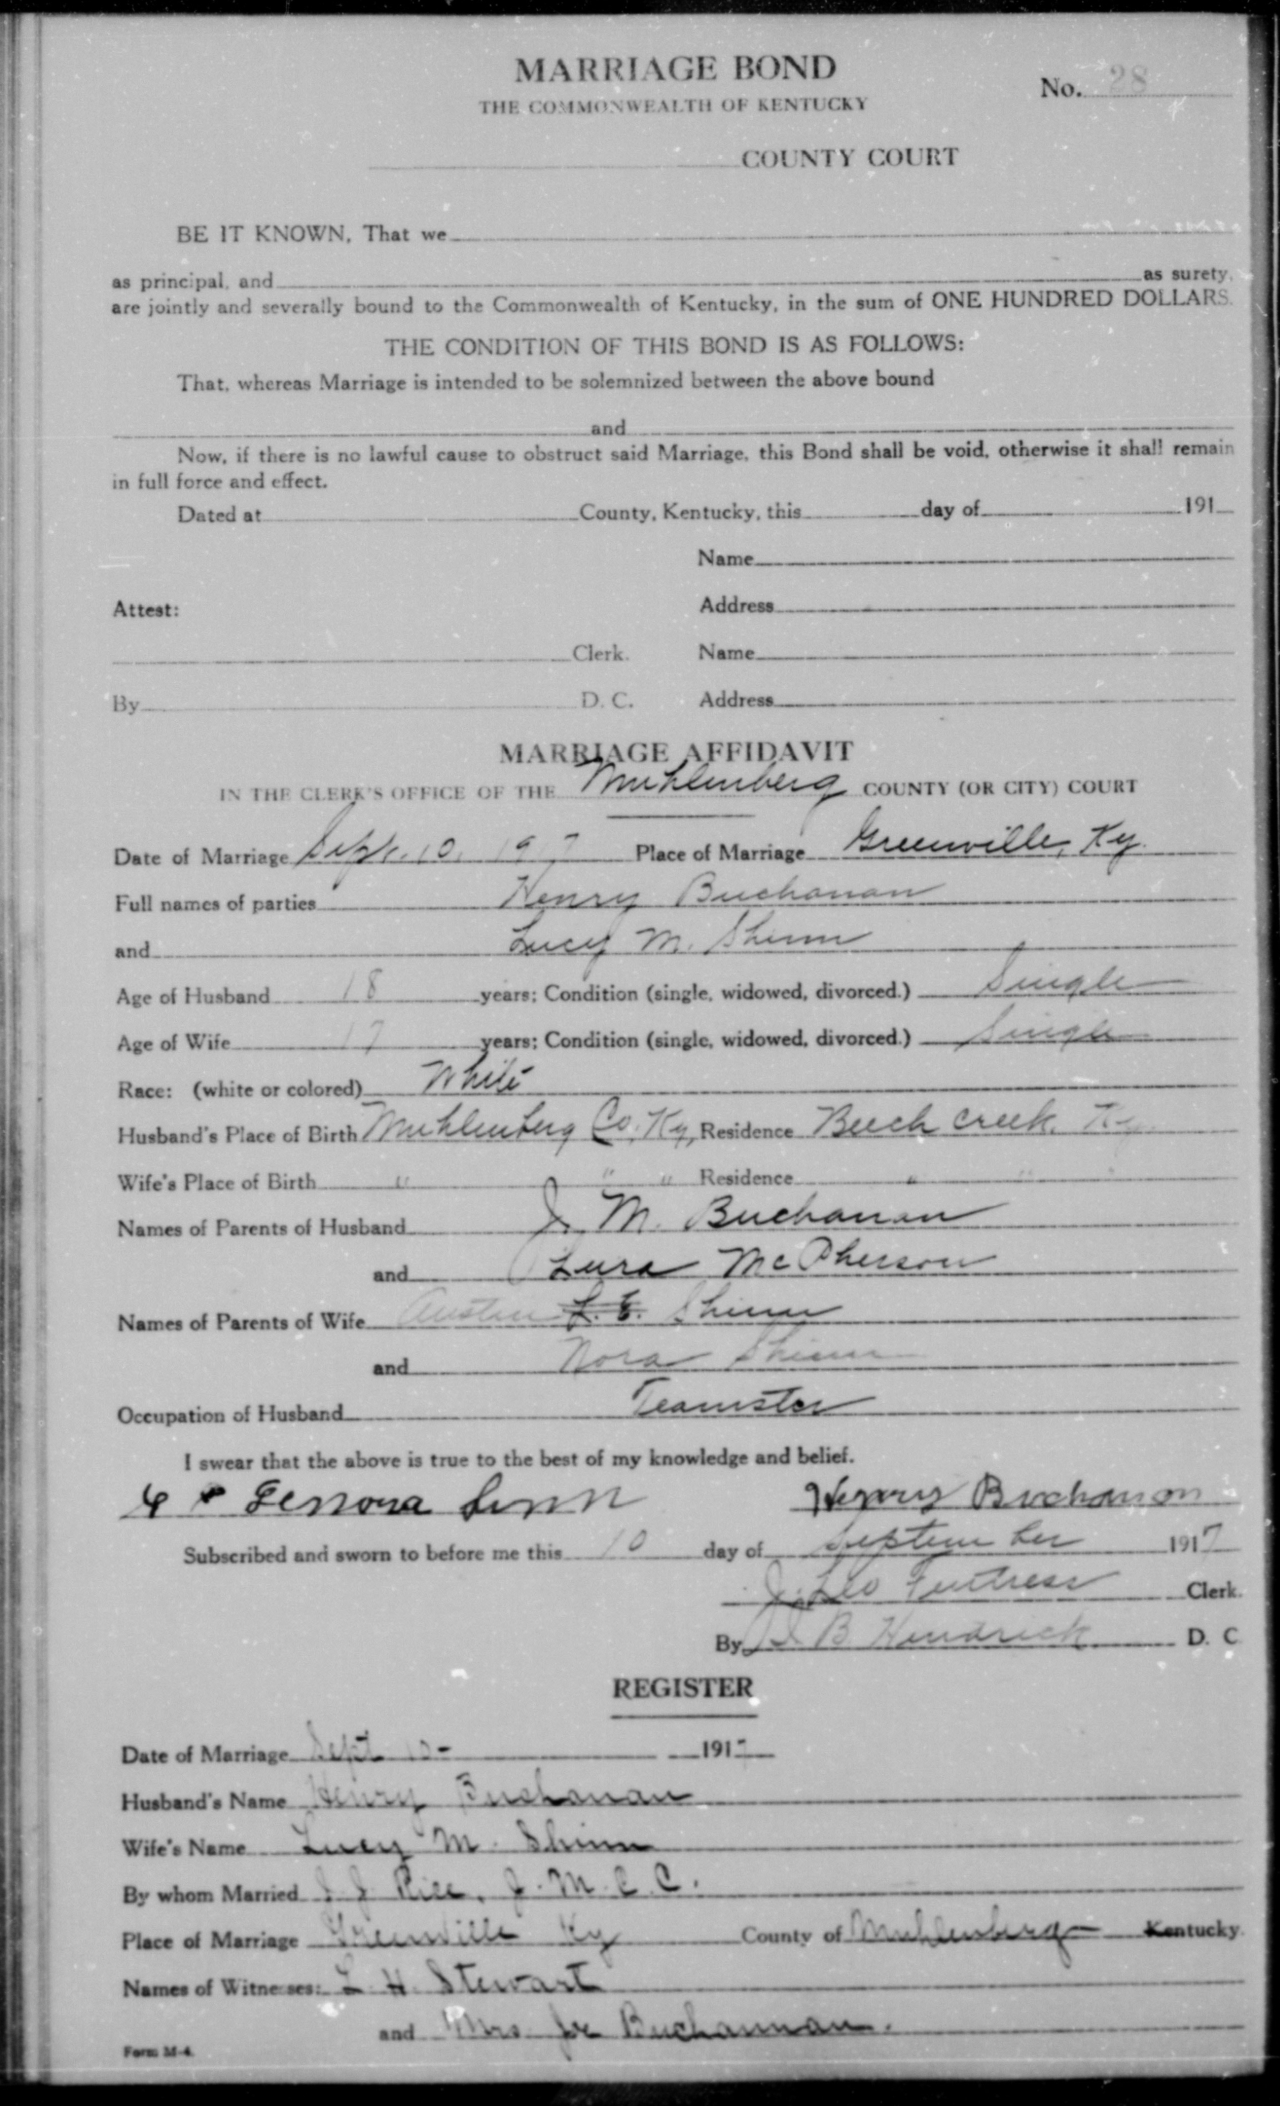 MARRIAGE BOND
No. 28
THE COMMONWEALTH OF KENTUCKY
COUNTY COURT
BE IT KNOWN, That we
as principal, and as surety,
are jointly and severally bound to the Commonwealth of Kentucky, in the sum of ONE HUNDRED DOLLARS.
THE CONDITION OF THIS BOND IS AS FOLLOWS:
That, whereas Marriage is intended to be solemnized between the above bound
and
Now, if there is no lawful cause to obstruct said Marriage, this Bond shall be void, otherwise it shall remain
in full force and effect.
Dated at County, Kentucky, this day of 191
Name
Attest: Address
Clerk. Name
By D. C. Address
MARRIAGE AFFIDAVIT
IN THE CLERK'S OFFICE OF THE Muhlenberg COUNTY (OR CITY) COURT
Date of Marriage Sept. 10, 1917 Place of Marriage Greenville, Ky.
Full names of parties Henry Buchanan
and Lucy M. Shinn
Age of Husband 18 years; Condition (single, widowed, divorced.) Single
Age of Wife 17 years; Condition (single, widowed, divorced.) Single
Race: (white or colored) White
Husband's Place of Birth Muhlenberg Co. Ky, Residence Beech Creek, Ky.
Wife's Place of Birth " " " Residence " " "
Names of Parents of Husband J. M. Buchanan
and Lura McPherson
Names of Parents of Wife Austin L. E. Shinn
and Nora Shinn
Occupation of Husband Teamster
I swear that the above is true to the best of my knowledge and belief.
Henry Buchanan
Subscribed and sworn to before me this 10 day of September 1917
J. Leo Fentress Clerk.
By B Hendrick D. C
REGISTER
Date of Marriage Sept 10- 1917
Husband's Name Henry Buchanan
Wife's Name Lucy M. Shinn
By whom Married J. J. Rice, J. M. C. C.
Place of Marriage Greenville Ky County of Muhlenberg Kentucky.
Names of Witnesses: L H. Stewart
and Mrs Joe Buchannan.
Form M-4.